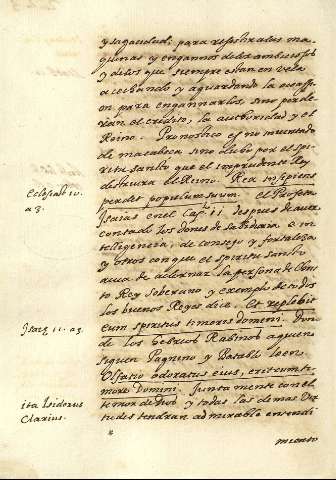 y sagacidad, para resistir a las ma-
quinas y engannos de los ambiciosos
y de los que siempre estan en vela
acechando y aguardando la occasi-
on para engannarlos, sino perde-
ran el credito, la auctoridad y el
Reino. Pronostico es no inventado
de mi cabeça sino dicho por el spi-
ritu sancto que el imprudente Rey
destruira el Reino. Rex insipiens
perdet populum suum. El Profeta
Isaias en el Cap. 11. despues de aver
contado los dones de sabiduria e in-
telligencia, de consejo y fortaleza
y otros con que el spiritu sancto
avia de adornar la persona de
to Rey soberano y exemplo de todos
los buenos Reyes dice. Et replebit
eum spiritus timoris domini. Don-
de los Hebreos Rabinos a quien
siguen Pagnino y Batabl. leen.
Olfatio odoratus eius, erit cum ti-
more Domini. Juntamente con el
temor de Dios y todas las demas Vir-
tudes tendran admirable entendi-
miento
Eclesiast. 10.
a 3.
Isai. 11. a 3.
ita Isidorus
Clarius.